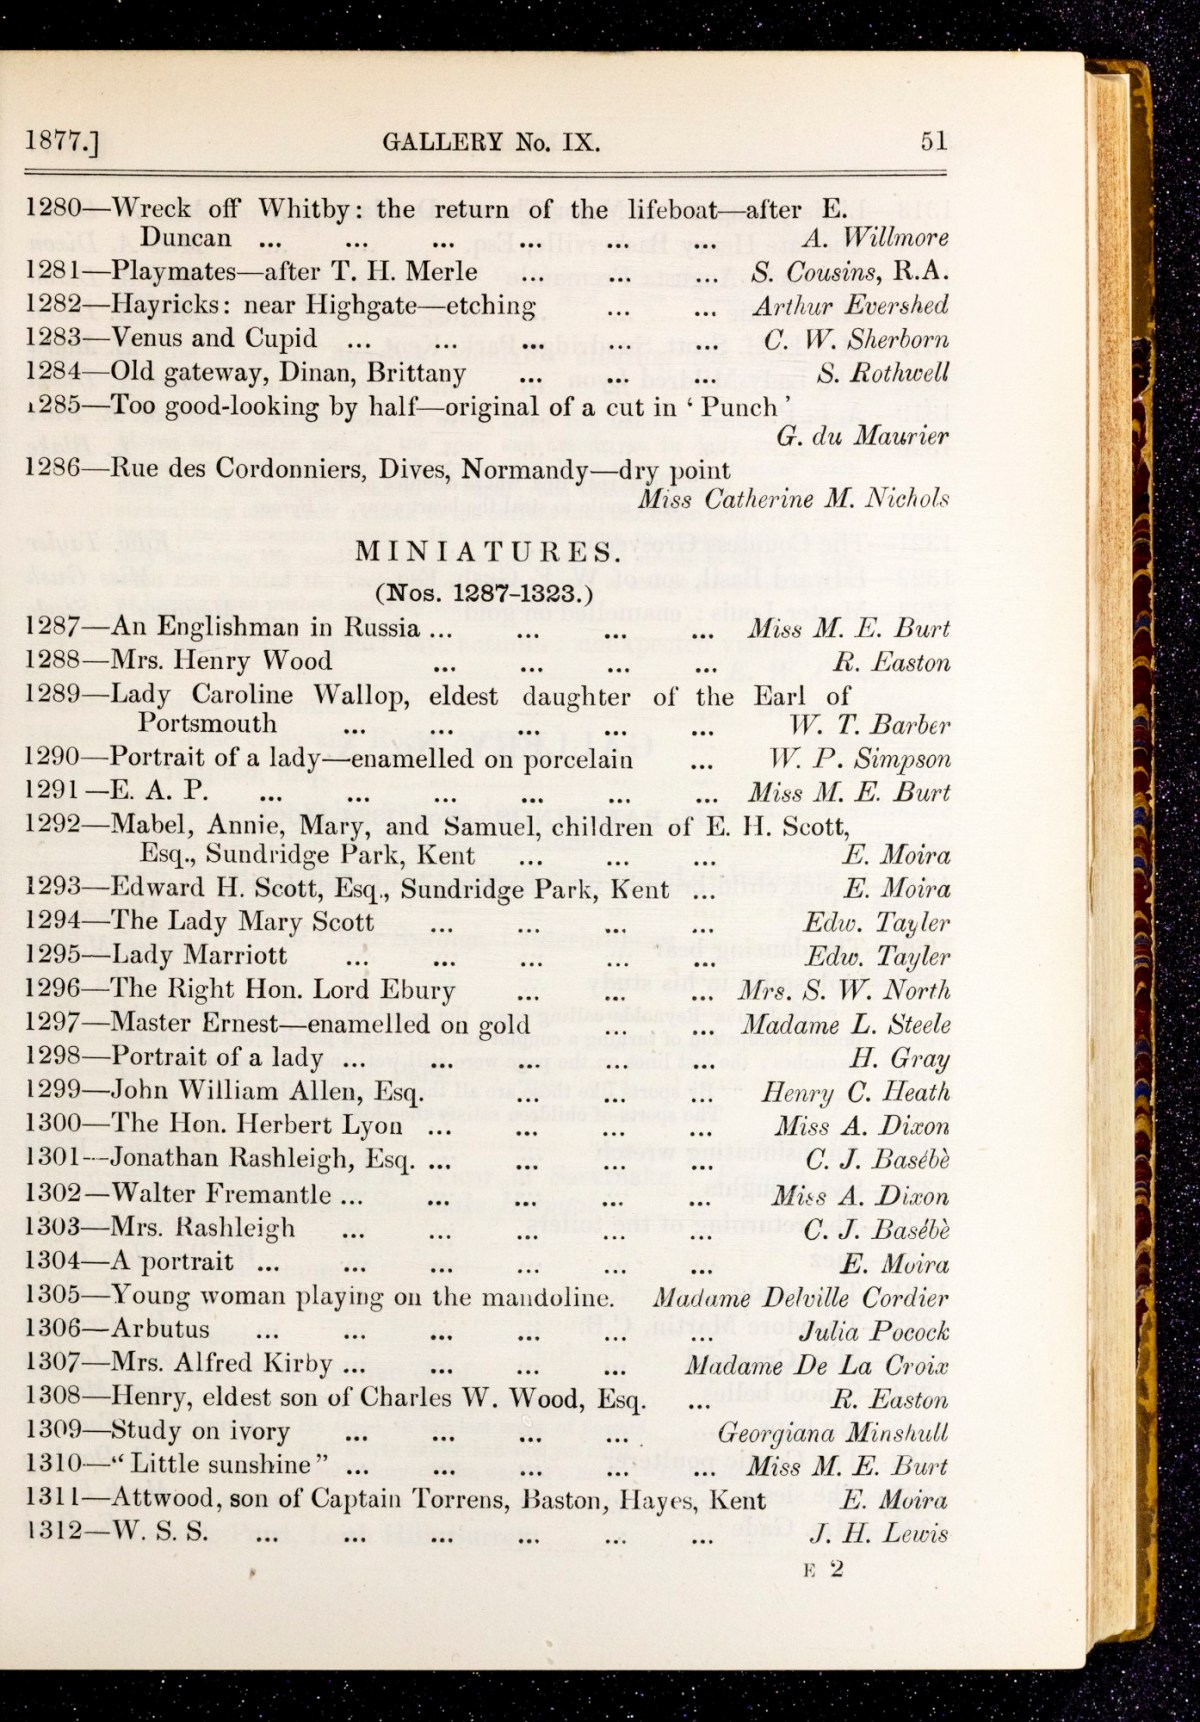 1877.] GALLERY No. IX. 51
1280—Wreck off Whitby: the return of the lifeboat—after E.
Duncan ... ... ... ... ... ... A. Willmore
1281—Playmates—after T. H. Merle ... ... ... S. Cousins, R.A.
1282—Hayricks: near Highgate—etching ... ... Arthur Evershed
1283—Venus and Cupid ... ... ... ... ... C. W. Sherborn
1284—Old gateway, Dinan, Brittany ... ... ... S. Rothwell
1285—Too good-looking by half—original of a cut in ‘ Punch ’
G. du Maurier
1286—Rue des Cordonniers, Dives, Normandy—dry point
Miss Catherine M. Nichols
MINIATURES.
(Nos. 1287-1323.)
1287—An Englishman in Russia ... ... ... ... Miss M. E. Burt
1288—Mrs. Henry Wood ... ... ... ... R. Easton
1289—Lady Caroline Wallop, eldest daughter of the Earl of
Portsmouth ... ... ... ... ... W. T. Barber
1290—Portrait of a lady—enamelled on porcelain ... W. P. Simpson
1291—E. A. P. ... ... ... ... ... ... Miss M. E. Burt
1292—Mabel, Annie, Mary, and Samuel, children of E. H. Scott,
Esq., Sundridge Park, Kent ... ... ... E. Moira
1293—Edward H. Scott, Esq., Sundridge Park, Kent ... E. Moira
1294—The Lady Mary Scott ... ... ... ... Edw. Tayler
1295—Lady Marriott ... ... ... ... ... Edw. Tayler
1296—The Right Hon. Lord Ebury ... ... ... Mrs. S. W. North
1297—Master Ernest—enamelled on gold ... ... Madame L. Steele
1298—Portrait of a lady ... ... ... ... ... H. Gray
1299—John William Allen, Esq. ... ... ... Henry C. Heath
1300—The Hon. Herbert Lyon ... ... ... ... Miss A. Dixon
1301—Jonathan Rashleigh, Esq. ... ... ... ... C. J. Basébè
1302—Walter Fremantle ... ... ... ... ... Miss A. Dixon
1303—Mrs. Rashleigh ... ... ... ... ... C. J. Basébè
1304—A portrait ... ... ... ... ... ... E. Moira
1305—Young woman playing on the mandoline. Madame Delville Cordier
1306—Arbutus ... ... ... ... ... ... Julia Pocock
1307—Mrs. Alfred Kirby ... ... ... ... Madame De La Croix
1308—Henry, eldest son of Charles W. Wood, Esq. ... R. Easton
1309—Study on ivory ... ... ... ... Georgiana Minshull
1310—“ Little sunshine ” ... ... ... ... ... Miss M. E. Burt
1311—Attwood, son of Captain Torrens, Baston, Hayes, Kent E. Moira
1312—W. S. S. ... ... ... ... ... ... J. H. Lewis
E 2